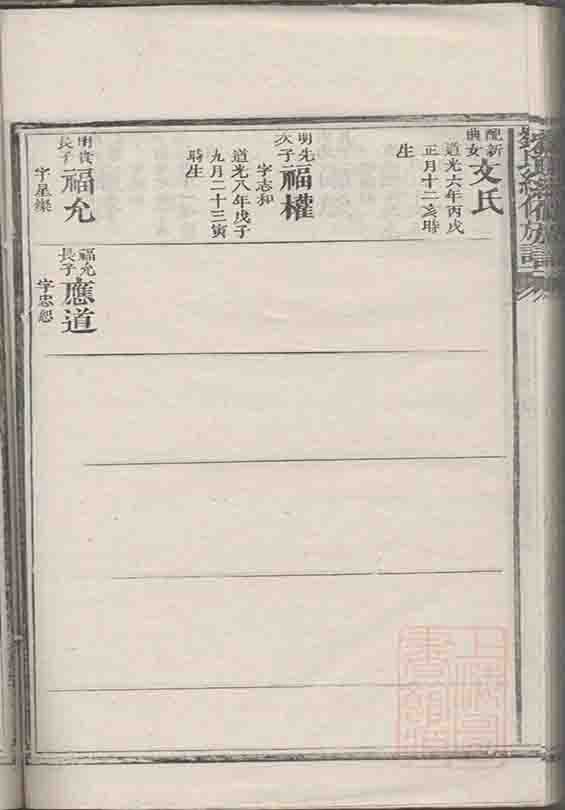 族譜
配新
典女
文氏
道光六年丙戌
正月十二亥時
生
明先
次子
福權
字志和
道光八年戊子
九月二十三寅
時生
明貴
長子
福允
字星樂
福允
長子
應道
字忠恕
上海圖
書館藏